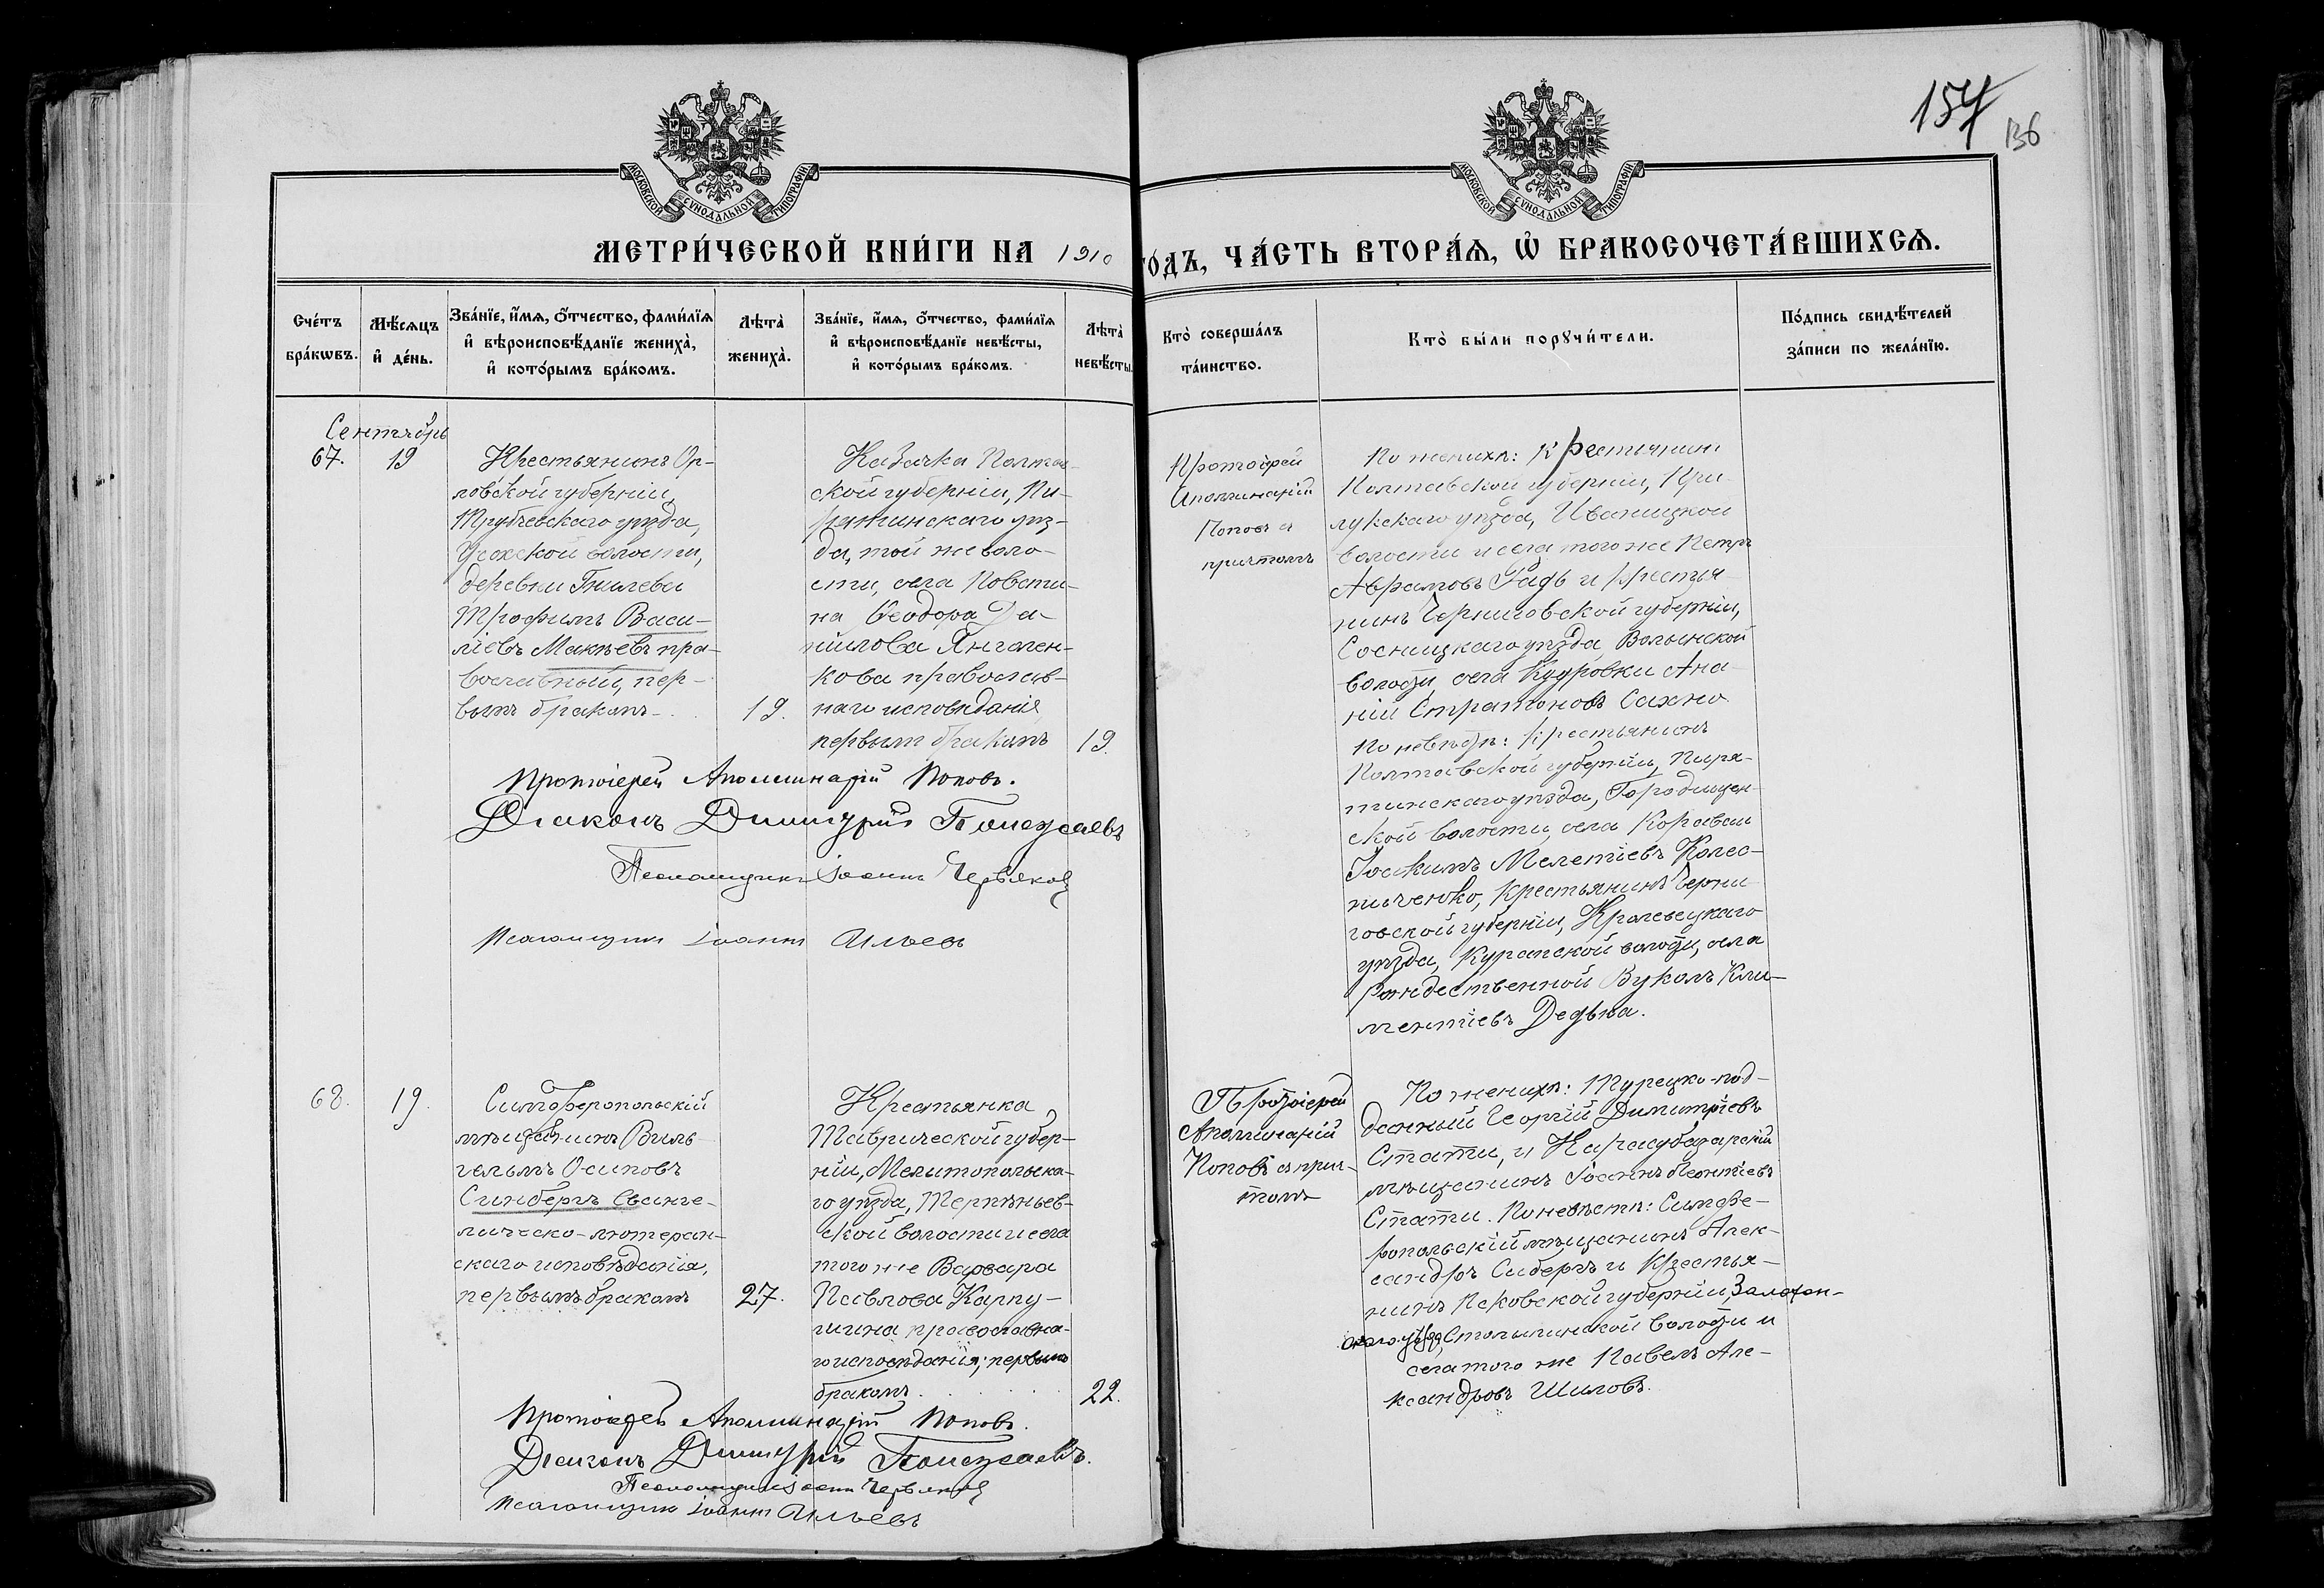 154
136
МОСКОВСКОЙ СУНОДАЛЬНОЙ ТИПОГРАФІИ
МОСКОВСКОЙ СУНОДАЛЬНОЙ ТИПОГРАФІИ
МЕТРИ́ЧЕСКОЙ КНИ́ГИ НА 1910 ГОДЪ, ЧА́СТЬ ВТОРА́Ѧ, Ѡ҆ БРАКОСОЧЕТА́ВШИХСѦ.
Сче́тъ
бра́кѡвъ.
Мѣ́сяцъ
и҆ де́нь.
Зва́нїе, и҆́мѧ, ѻ҆́тчество, фами́лїѧ
и҆ вѣроисповѣ́данїе жениха̀,
и҆ кото́рымъ бра́комъ.
Лѣта̀
жениха̀.
Зва́нїе, и҆́мѧ, ѻ҆́тчество, фами́лїѧ
и҆ вѣроисповѣ́данїе невѣ́сты,
и҆ кото́рымъ бра́комъ.
Лѣта̀
невѣ́сты.
Кто̀ соверша́лъ
та́инство.
Кто̀ бы́ли порꙋчи́тели.
По́дпись свидѣ́телей
за́писи по жела́нїю.
Сентябрь
67.
19
Крестьянинъ Ор-
ловской губерніи,
Трубчевскаго уѣзда,
Усохской волости,
деревни Гнилева
Трофимъ Васи-
ліевъ Макѣевъ пра-
вославный, пер-
вымъ бракомъ
19.
Казачка Полтав-
ской губерніи, Пи-
рятинскаго уѣз-
да, той же воло-
сти, села Повсти-
на Ѳеодора Да-
нилова Янголен-
кова православ-
наго исповѣданія
первымъ бракомъ
19.
Протоіерей
Аполлинарій
Поповъ съ
причтомъ
По женихѣ: Крестьянинъ
Полтавской губерніи, При-
лукскаго уѣзда, Иваницкой
волости и села того же Петръ
Аврамовъ Гадь и крестья-
нинъ Черниговской губерніи,
Сосницкаго уѣзда, Волынской
волости, села Кудровки Ана-
ній Стратоновъ Сахно.
По невѣстѣ: крестьянинъ
Полтавской губерніи, Пиря-
тинскаго уѣзда, Городищен-
ской волости, села Короваи
Іоакимъ Мелетіевъ Колес-
ниченко, крестьянинъ Черни-
говской губерніи, Кролевецкаго
уѣзда, волости, села
Рождественной Вуколъ Кли-
ментіевъ
Протоіерей Аполлинарій Поповъ.
Діаконъ Димитрій
Псаломщикъ Іоаннъ Червяковъ
Псаломщикъ Іоаннъ Ильевъ
68.
19.
Симферопольскій
мѣщанинъ Виль-
гельмъ Осиповъ
Синбергъ Еванге-
лическо-лютеран-
скаго исповѣданія,
первымъ бракомъ
27.
Крестьянка
Таврической губер-
ніи, Мелитопольска-
го уѣзда, Терпѣньев-
ской волости и села
того же Варвара
Павлова Карпу-
шина православна-
го исповѣданія, первымъ
бракомъ.
22.
Протоіерей
Аполлинарій
Поповъ съ прич-
томъ
По женихѣ: Турецко-под-
данный Георгій Димитріевъ
Стати, и Карасубазарскій
мѣщанинъ Іоаннъ Леонтіевъ
Стати. По невѣстѣ: Симфе-
ропольскій мѣщанинъ Алек-
сандръ Сибергъ и крестья-
нинъ Псковской губерніи,
уѣзда, волости и
села того же Павелъ Але-
ксандровъ Шиловъ.
Протоіерей Аполлинарій Поповъ.
Діаконъ Димитрій
Псаломщикъ Іоаннъ Червяковъ
Псаломщикъ Іоаннъ Ильевъ